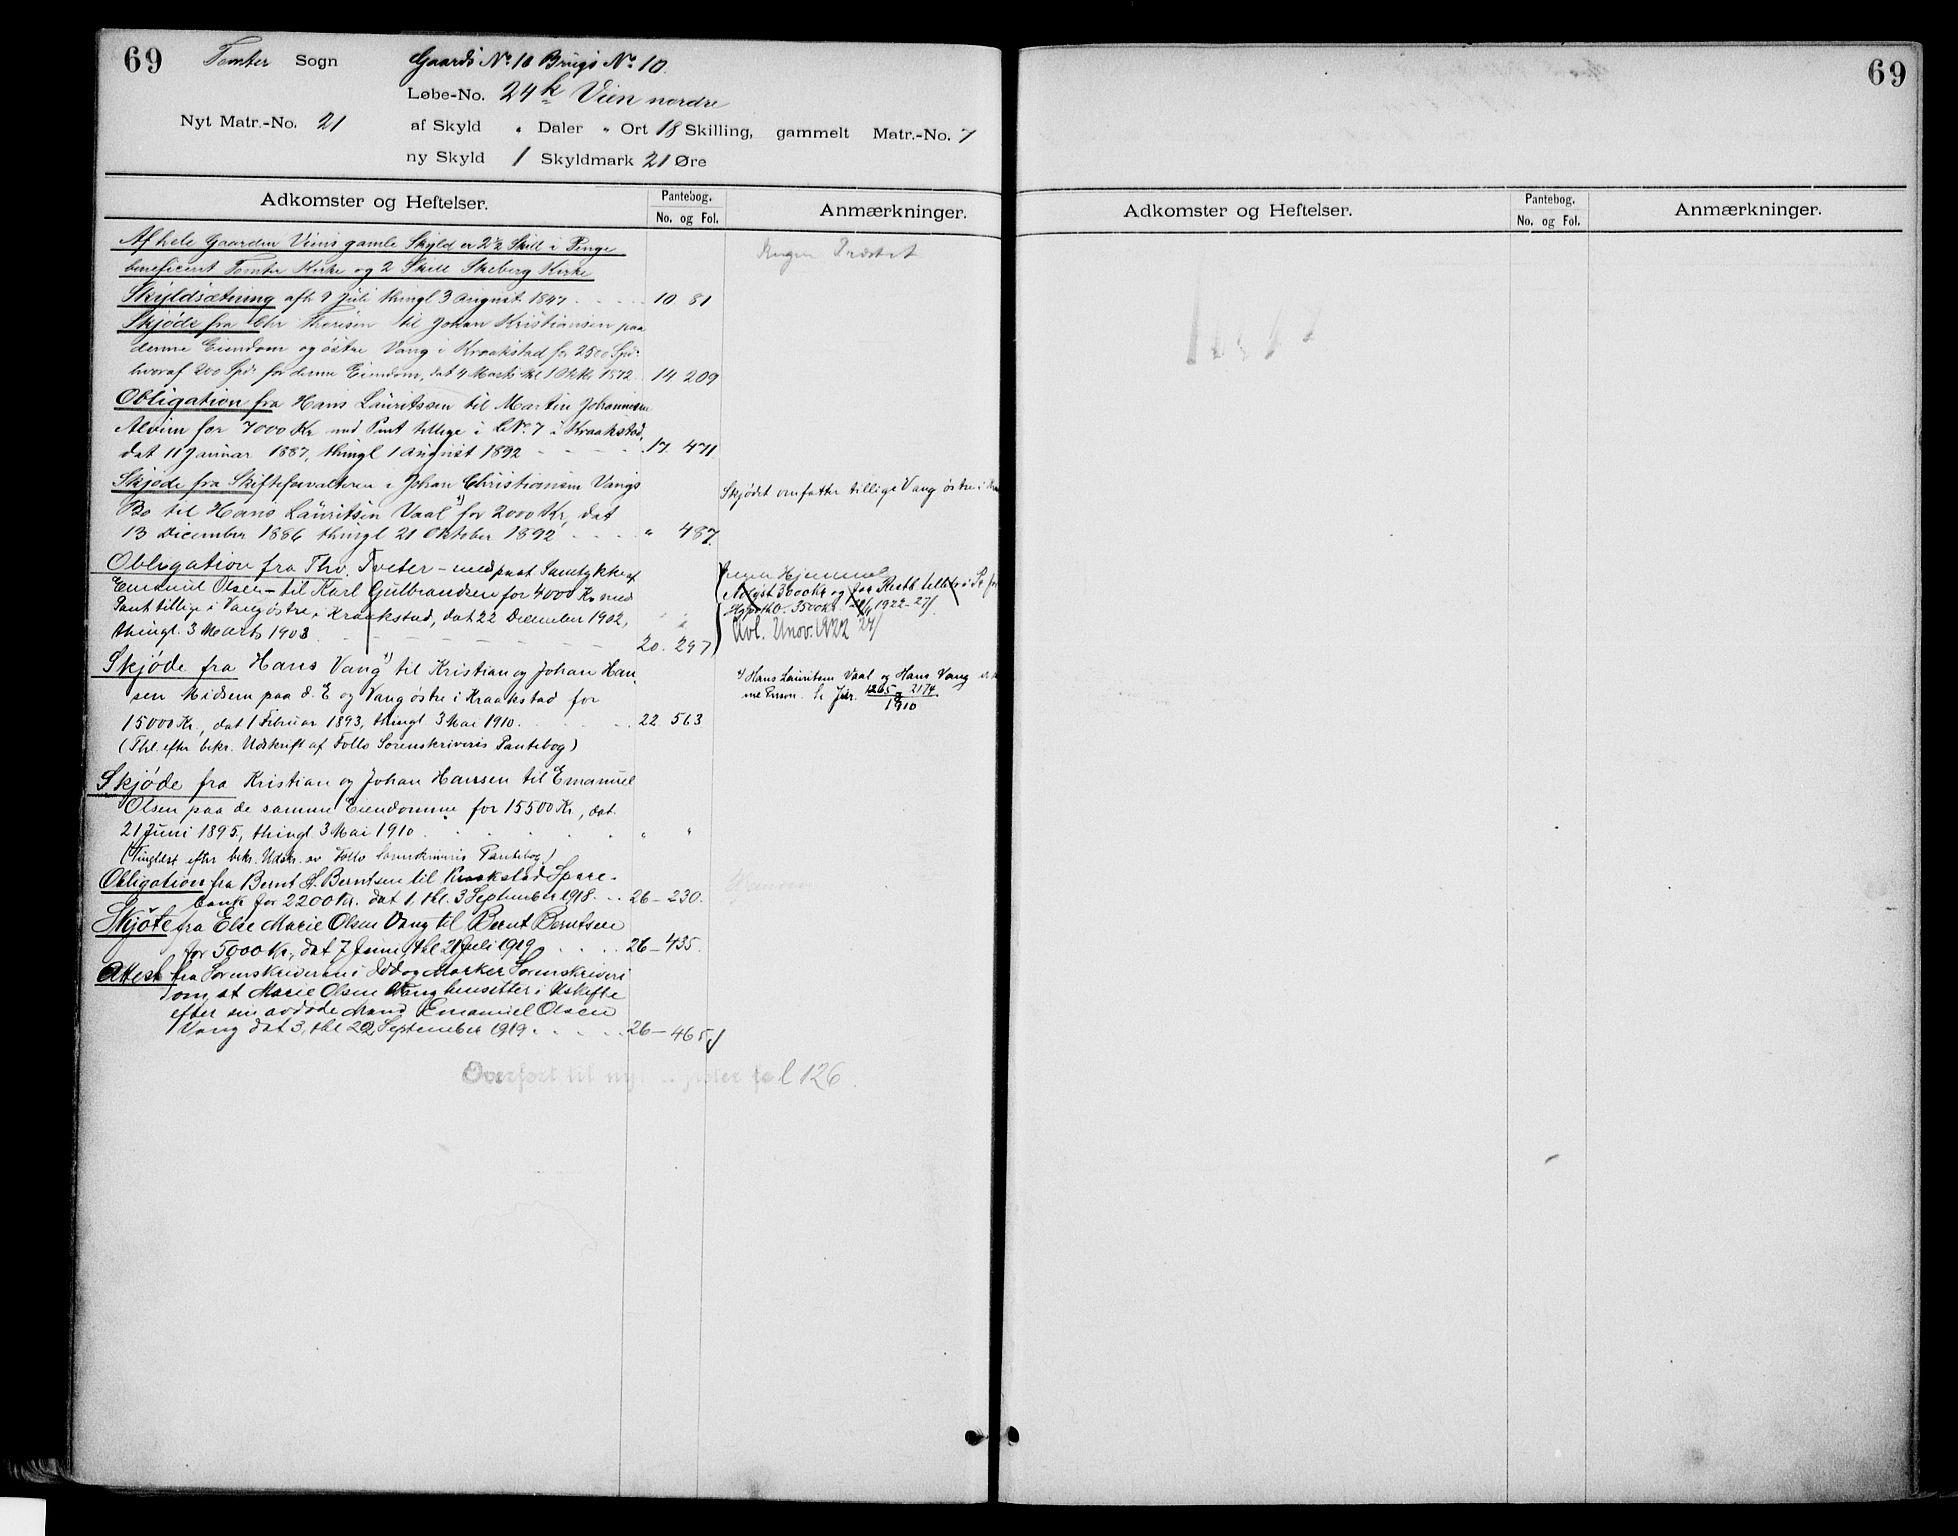 69
Tomter Sogn
Gaards No. 10 Brugs No. 10.
Løbe-No. 24k Vien nordre
Nyt Matr.-No. 21 af Skyld " Daler " Ort 18 Skilling, gammelt Matr.-No. 7
ny Skyld 1 Skyldmark 21 Øre
Adkomster og Heftelser.
Pantebog.
No. og Fol.
Anmærkninger.
Af hele Gaarden Viens gamle Skyld er 2 1/2 Skill i Penge
beneficeret Tomter Kirke og 2 Skill Skeberg Kirke
Skyldsætning afh 9 Juli thingl 3 August 1847 10 81
Skjøde fra Chr Thoresen til Johan Kristiansen paa
denne Eiendom og østre Vang i Kraakstad for 2500 Spd.
hvoraf 200 Spd. for denne Eiendom, dat 4 Marts thl 1 Oktbr 1872 14 209
Obligation fra Hans Lauritssen til Martin Johannesen
Alvim for 7000 Kr med Pant tillige i LNo. 7 i Kraakstad,
dat 11 Januar 1887, thingl 1 August 1892 17. 471
Skjøde fra Skifteforvalteren i Johan Christiansen Vangs
Bo til Hans Lauritsen Vaal *) for 2000 Kr, dat
13 December 1886 thingl 21 Oktober 1892 " 487.
Skjødet omfatter tillige Vang østre i
Obligation fra Thv. Tveter – med paat Samtykke af
Emanuel Olsen – til Karl Gulbrandsen for 4000 Kr med
Pant tillige i Vang østre i Kraakstad, dat 22 December 1902,
thingl. 3 Marts 1903. 20. 297
Ingen Hjemmel
Avløst 3000 Kr og for Restb
3500 Kr. 1922 – 27/
Avl. 2 nov. 1922 27/
Skjøde fra Hans Vang *) til Kristian og Johan Han-
sen Midsem paa d. E og Vang østre i Kraakstad for
15000 Kr., dat 1 Februar 1893, thingl 3 Mai 1910. 22 563
(Thl. efter bekr. Udskrift af Follo Sorenskriveris Pantebog)
*) Hans Lauritsen Vaal og Hans Vang er
me Person. Se Jnr. 1265 og 2174
1910
Skjøde fra Kristian og Johan Hansen til Emanuel
Olsen paa de samme Eiendomme for 15500 Kr., dat.
21 Juni 1895, thingl 3 Mai 1910. " "
(Tinglæst efter bekr. Udskr. av Follo Sorenskriveris Pantebog)
Obligation fra Bernt A. Berntsen til Kraakstad Spare-
bank for 2200 Kr. dat 1, thl. 3 September 1918. 26 – 230.
Skjøte fra Else Marie Olsen Vang til Bernt Berntsen
for 5000 Kr., dat 7 Juni, thl 21 Juli 1919 26 – 435.
Attest fra Sorenskriveren i Idd og Marker Sorenskriveri
om at Marie Olsen Vang hensitter i Uskifte
efter sin avdøde Mand Emanuel Olsen
Vang dat 3, thl 22 September 1919. 26 – 465
Overført til ny fol 126.
69
Adkomster og Heftelser.
Pantebog.
No. og Fol.
Anmærkninger.